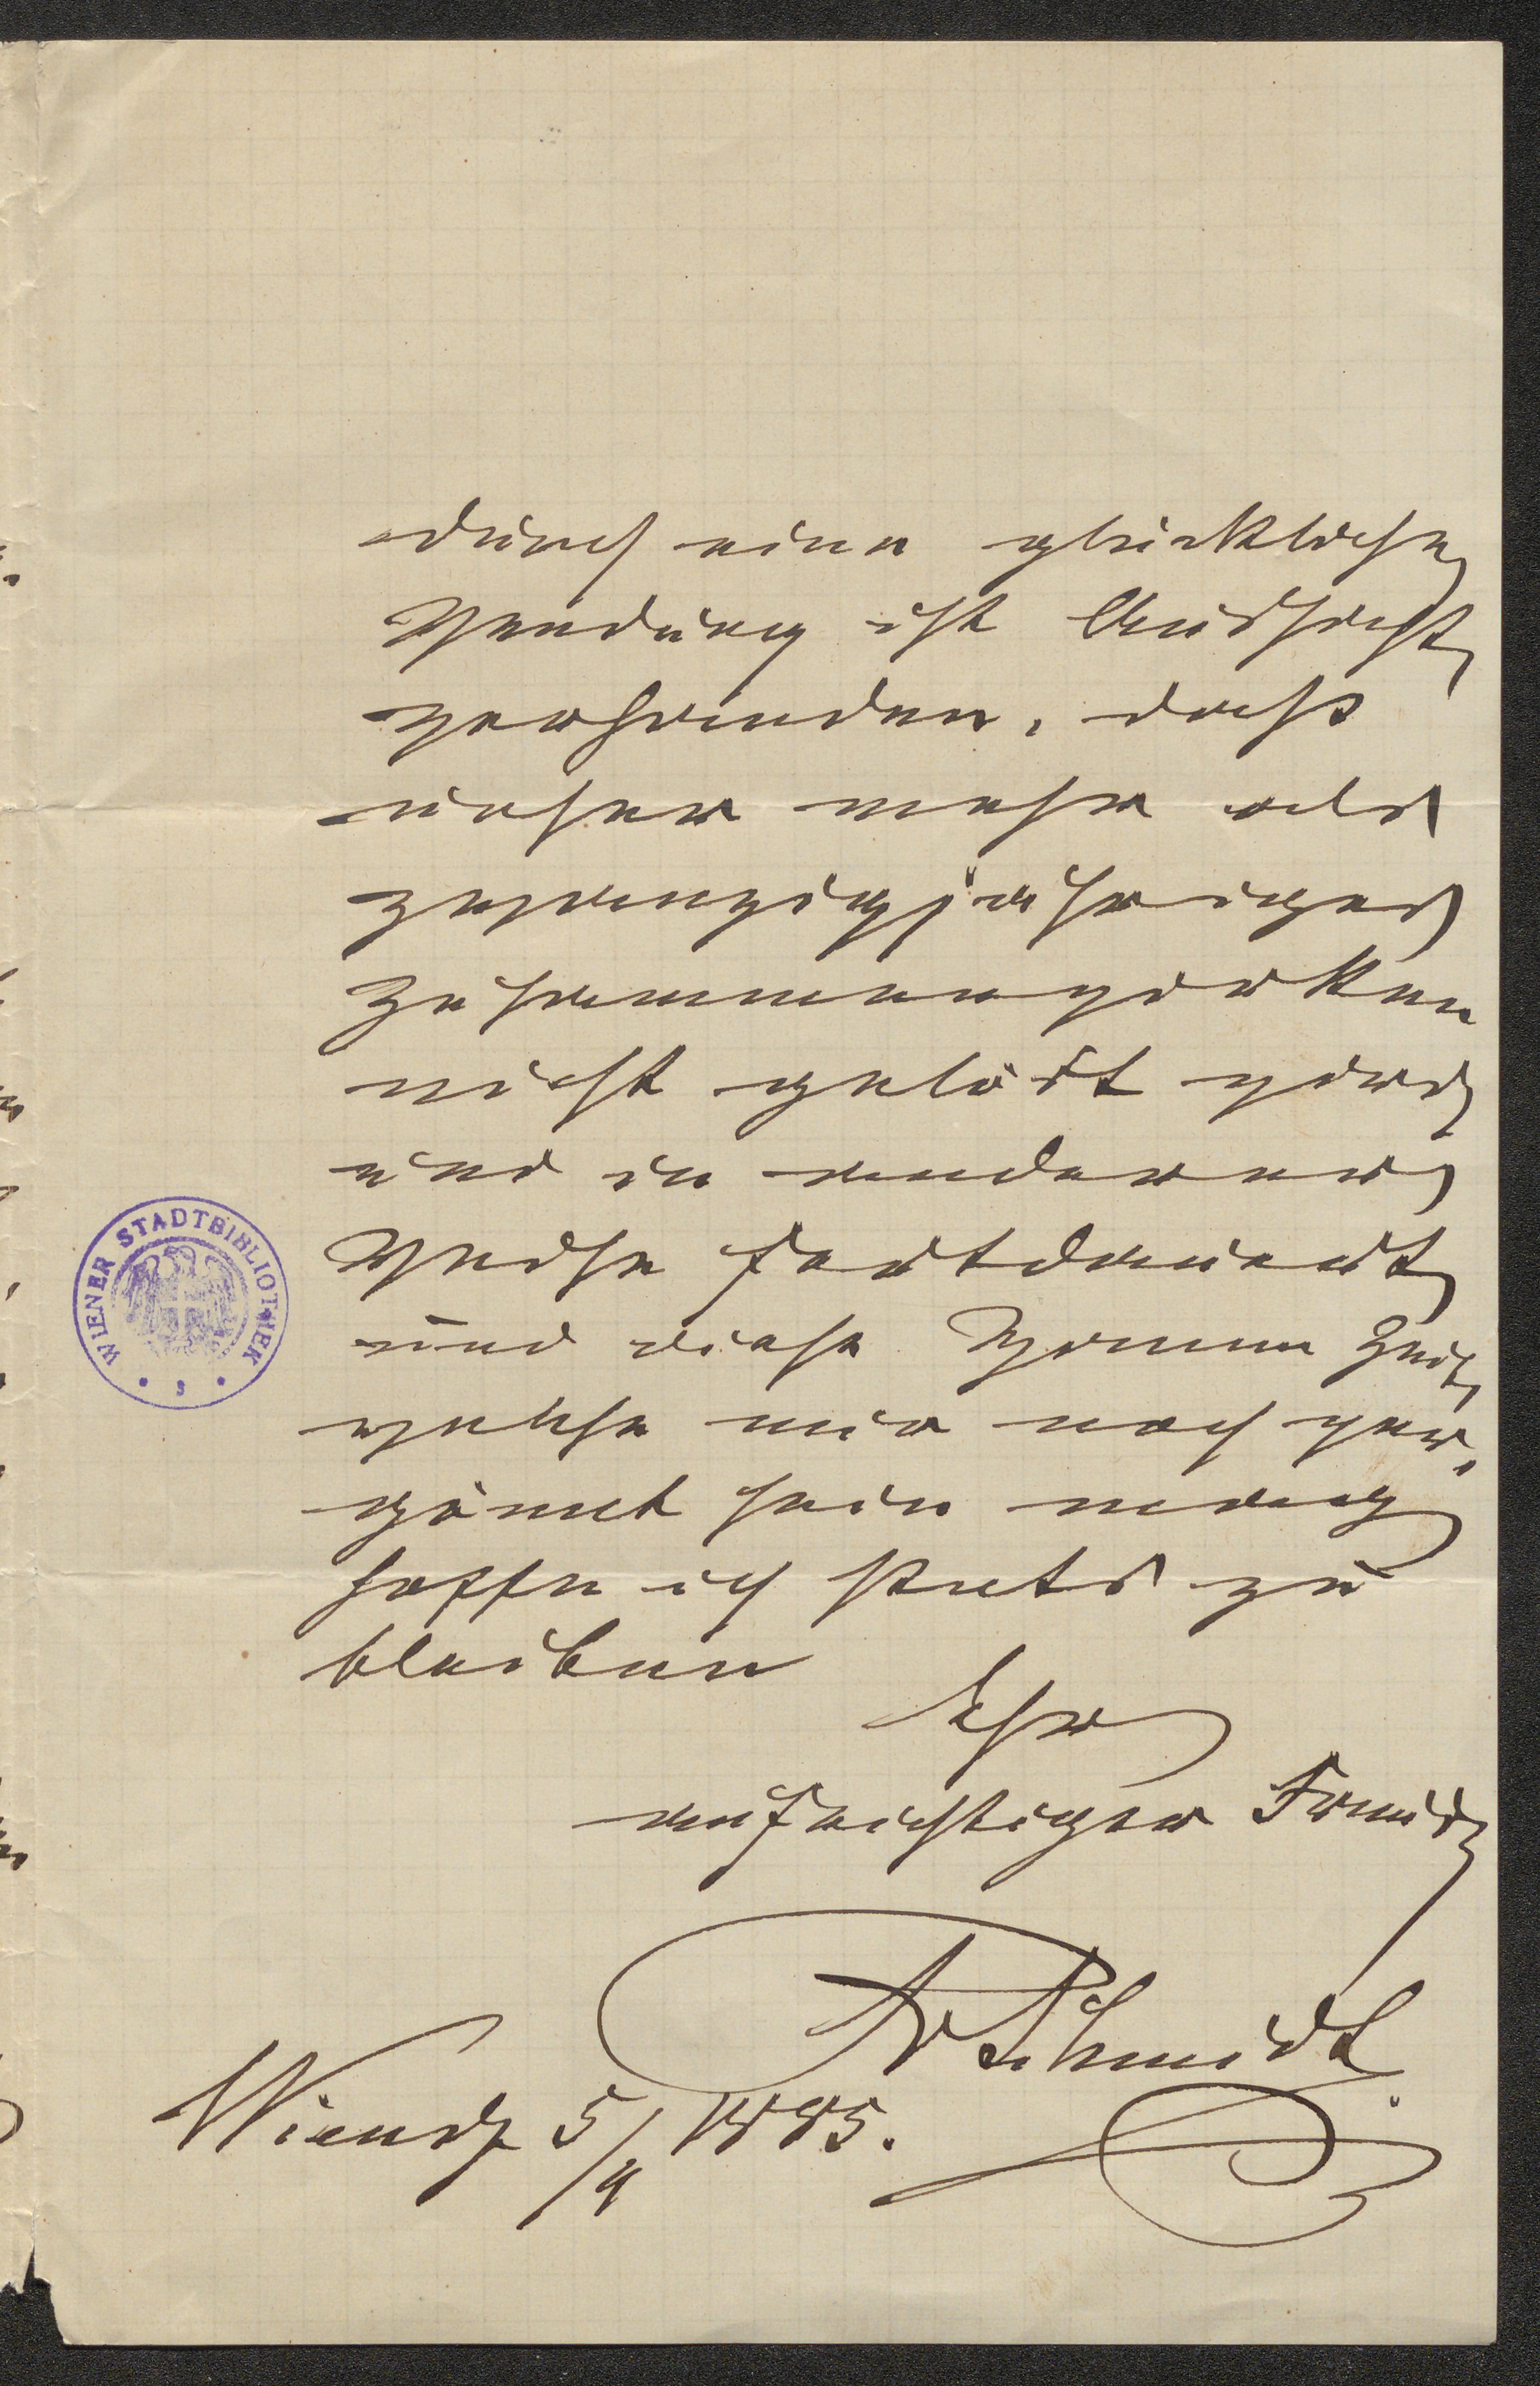 durch eine glückliche
Wendung ist Aussicht
vorhanden, dass
unser mehr als
zwanzigjähriges
Zusammenwirken
nicht gelöst wird
und in anderer
Weise fortdauert
und diese Spanne Zeit,
welche mir noch ver-
gönnt sein mag
hoffe ich stets zu
bleiben
Ihr
aufrichtiger Freund
FvSchmidt
Wien d 5/4 1885.
WIENER STADTBIBLIOTHEK